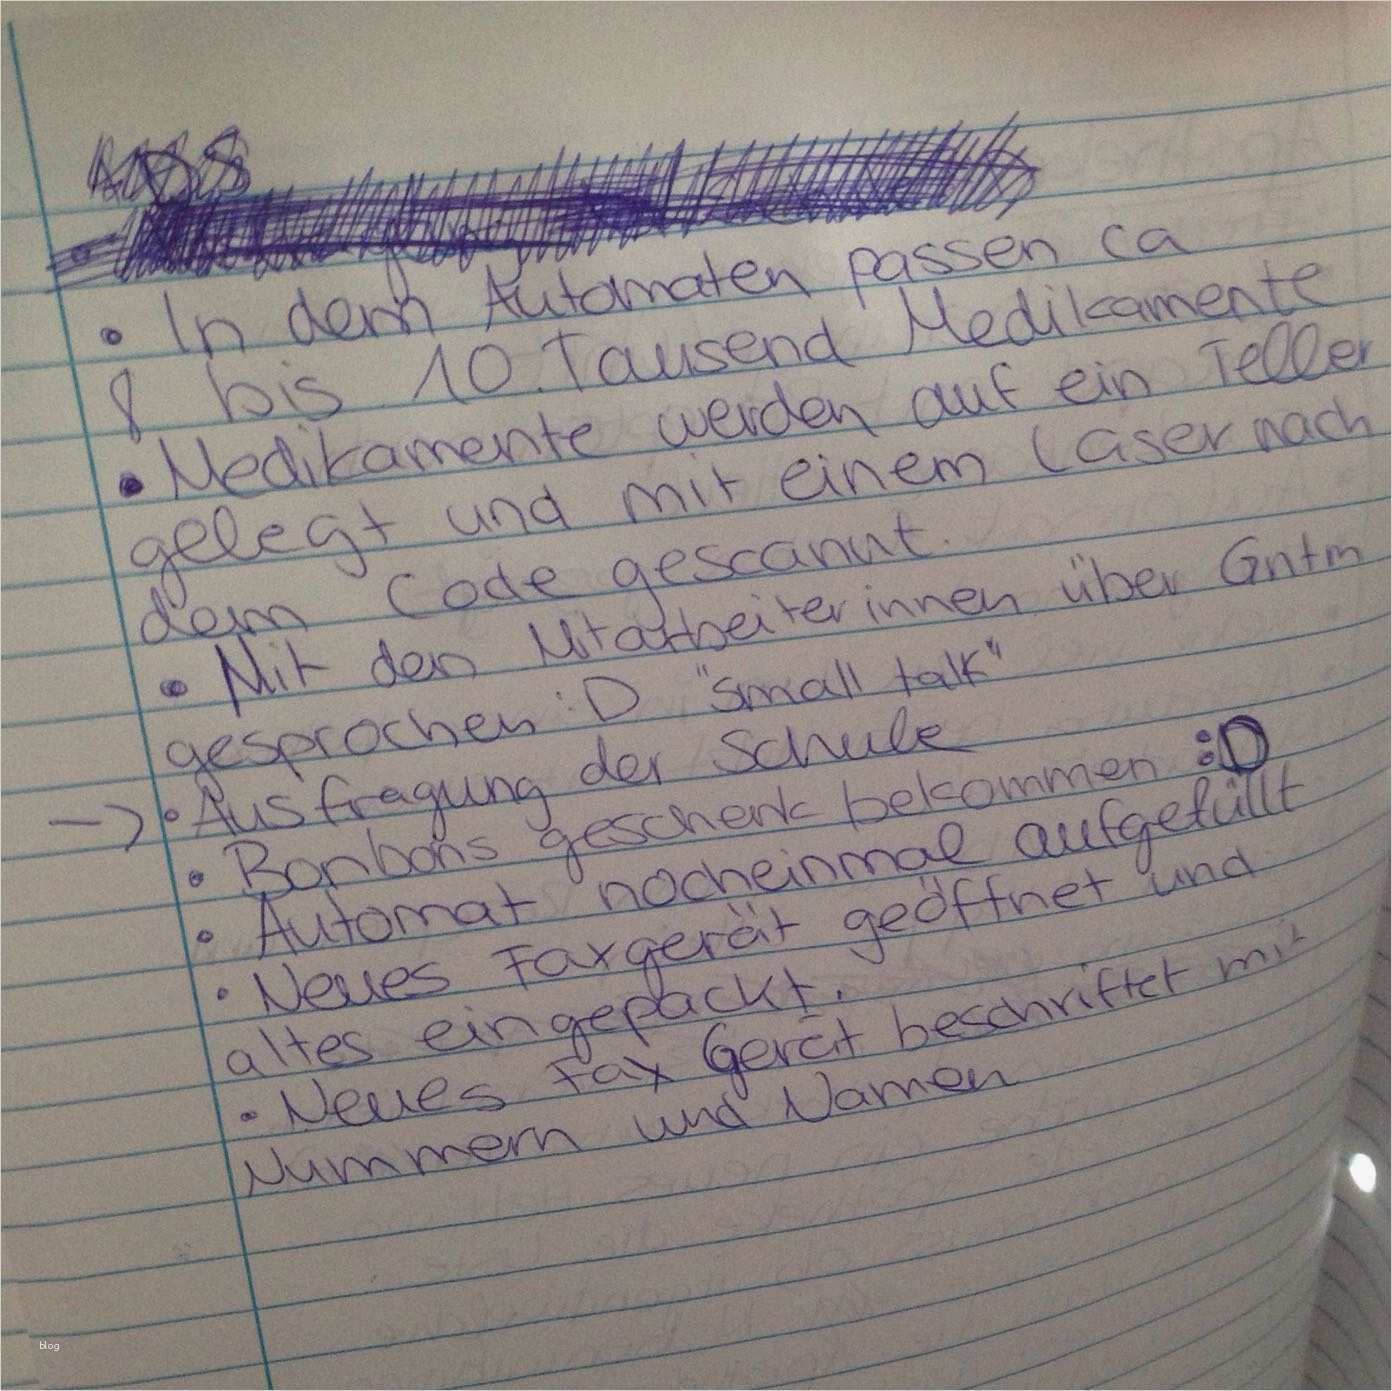 • In dem Automaten passen ca
8 bis 10.Tausend Medikamente
• Medikamente werden auf ein Teller
gelegt und mit einem Laser nach
dem Code gescannt.
• Mit den Mitarbeiterinnen über Gntm
gesprochen :D "small talk"
→ • Ausfragung der Schule
• Bonbons geschenk bekommen :D
• Automat nocheinmal aufgefüllt
• Neues Faxgerät geöffnet und
altes eingepackt.
• Neues Fax Gerät beschriftet mit
Nummern und Namen
blog